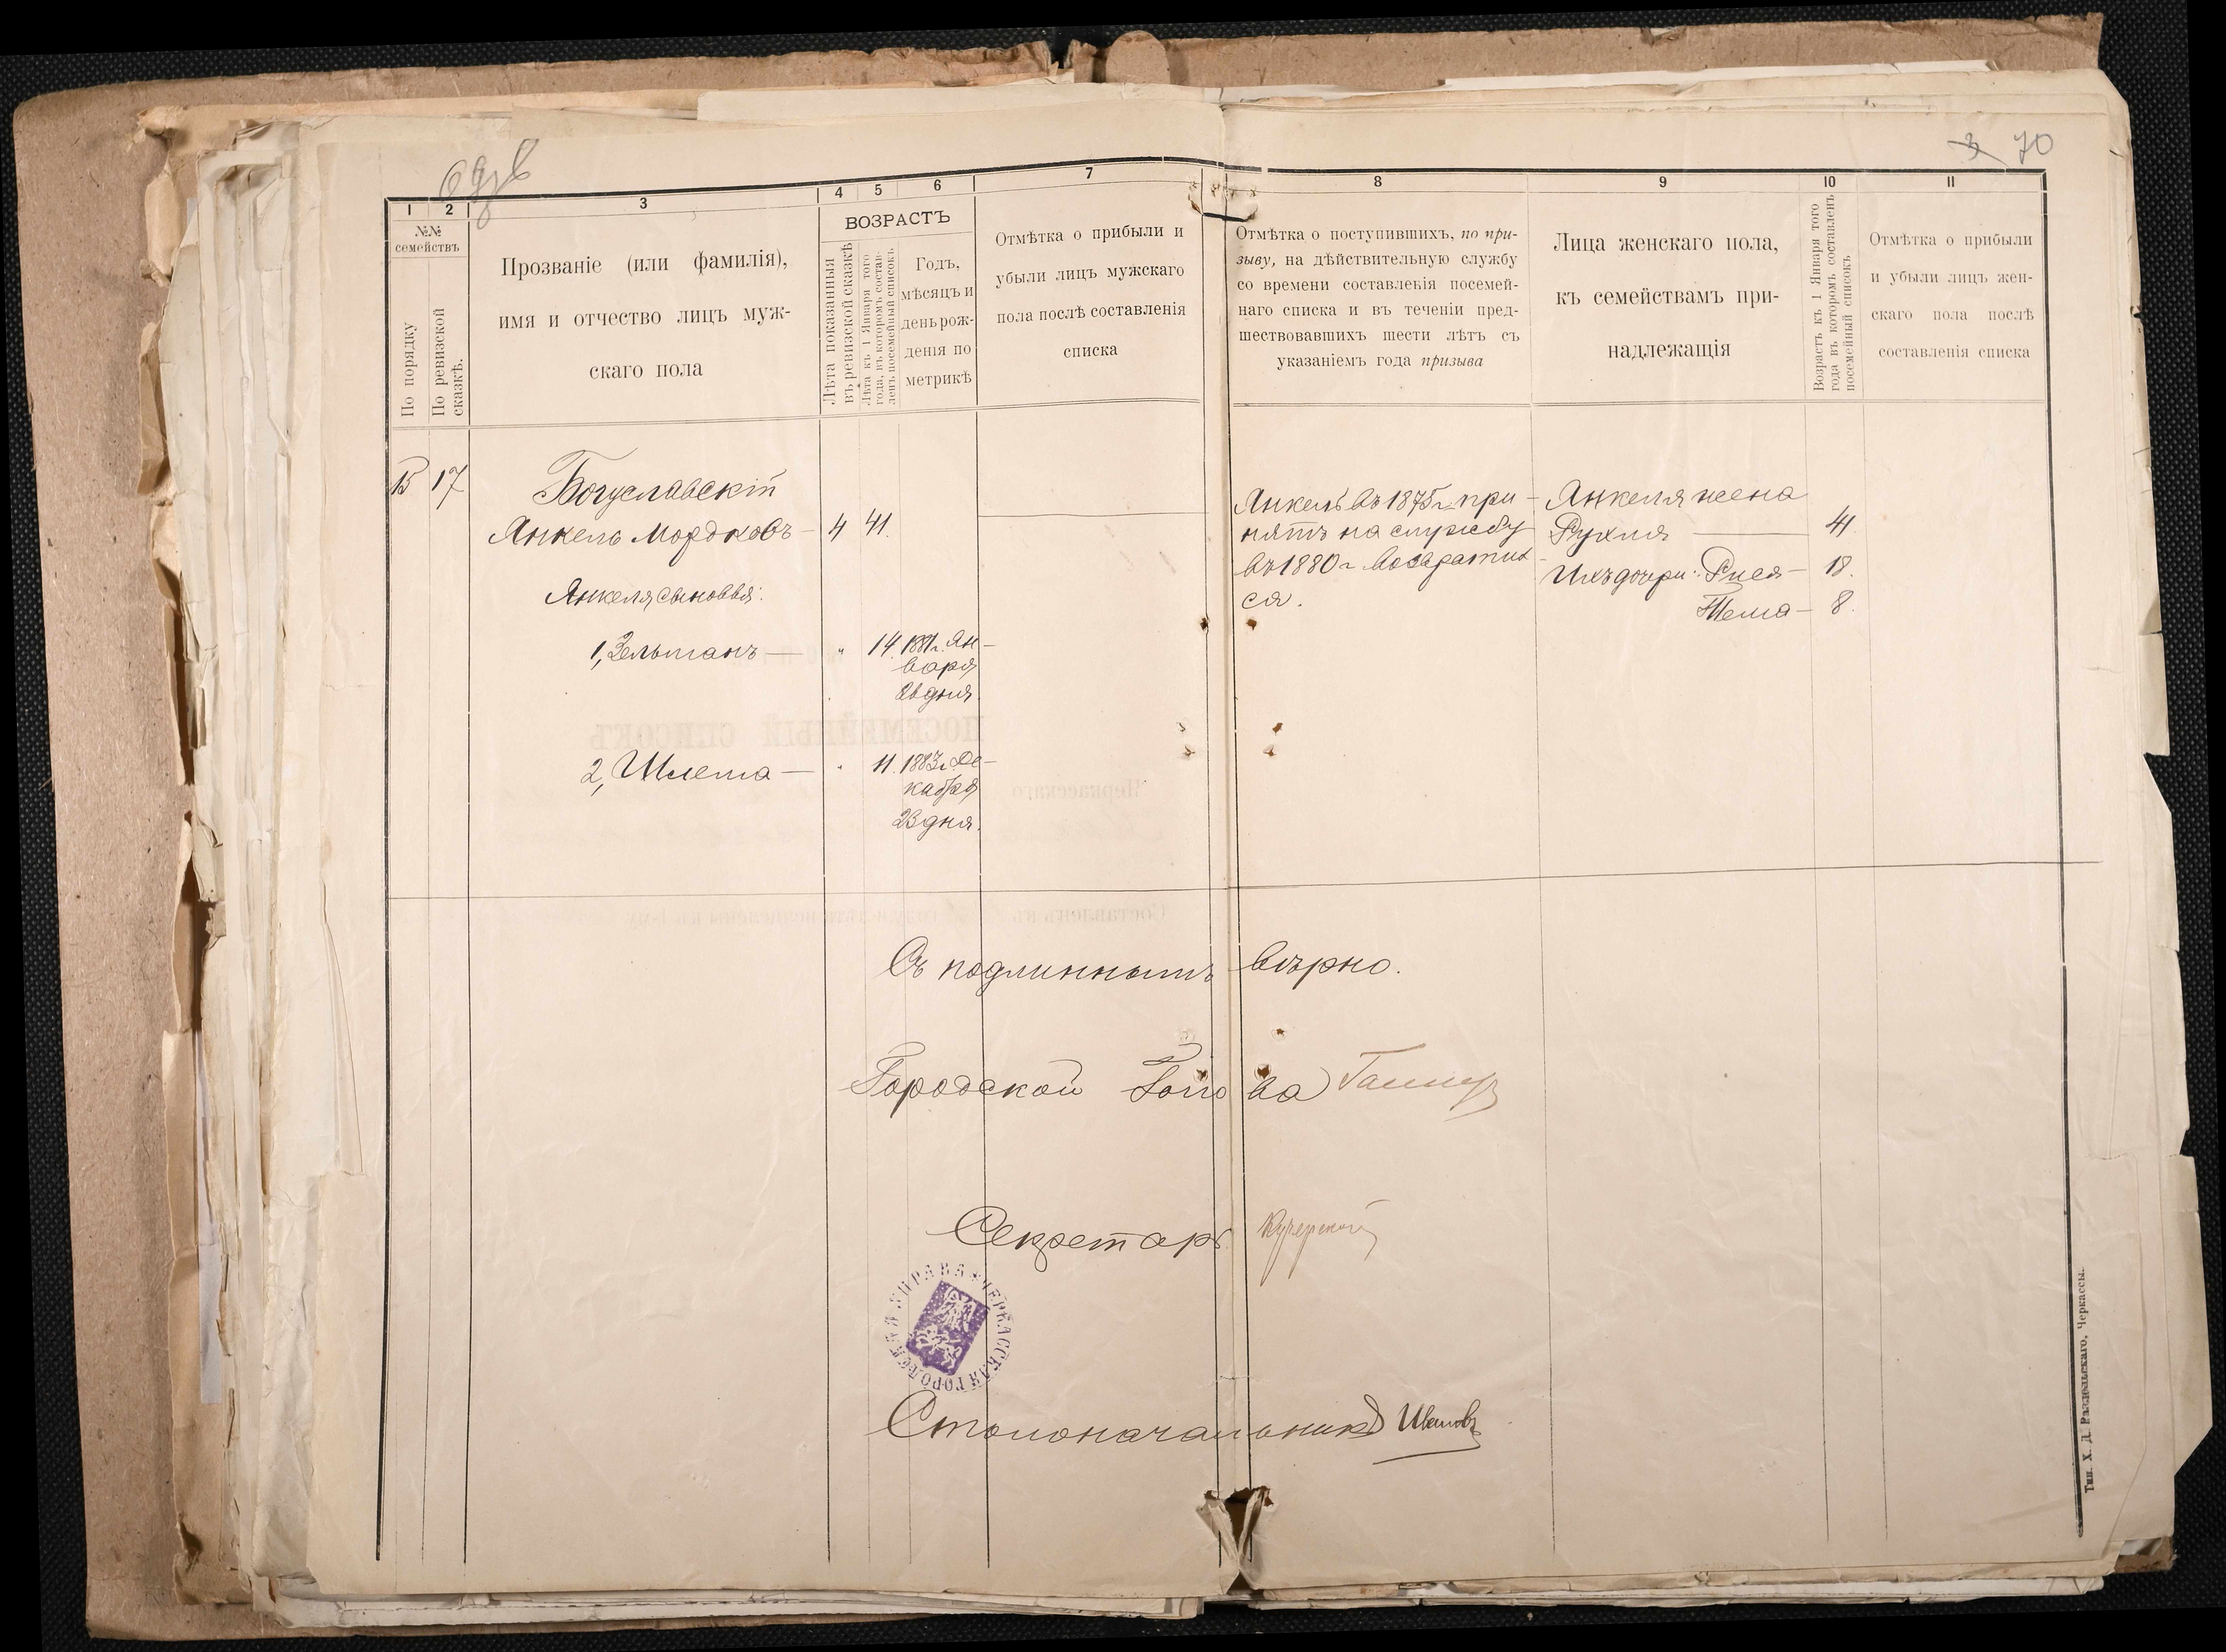 70
1 2 3 4 5 6 7 8 9 10 11
№№ семействъ
По порядку
По ревизской сказкѣ.
Прозваніе (или фамилія),
имя и отчество лицъ муж-
скаго пола
ВОЗРАСТЪ
Лѣта показанныя
въ ревизской сказкѣ
Лѣта къ 1 Января того
года, въ которомъ состав-
ленъ посемейный списокъ.
Годъ,
мѣсяцъ и
день рож-
денія по
метрикѣ
Отмѣтка о прибыли и
убыли лицъ мужскаго
пола послѣ составленія
списка
Отмѣтка о поступившихъ, по при-
зыву, на дѣйствительную службу
со времени составленія посемей-
наго списка и въ теченіи пред-
шествовавшихъ шести лѣтъ съ
указаніемъ года призыва
Лица женскаго пола,
къ семействамъ при-
надлежащія
Возрастъ къ 1 Января того
года въ которомъ составленъ
посемейный списокъ
Отмѣтка о прибыли
и убыли лицъ жен-
скаго пола послѣ
составленія списка
17
Богуславскій
Янкель Мордковъ — 4 41.
Янкеля сыновья:
1, Зельманъ — " 14. 1881 г. Ян-
варя
дня.
2, Шлема — " 11. 1883 г. Де-
кабря
23 дня.
Янкель въ 1875 г. при-
нятъ на службу
въ 1880 г. возвратил-
ся.
Янкеля жена
Рухля — 41
Ихъ дочери: Рися — 18.
8.
Съ подлиннымъ вѣрно.
Городской Голова
Секретарь
ЧЕРКАССКАЯ ГОРОДСКАЯ УПРАВА
Столоначальникъ Ивановъ
Тип. Х. Д. Раздельскаго, Черкассы.